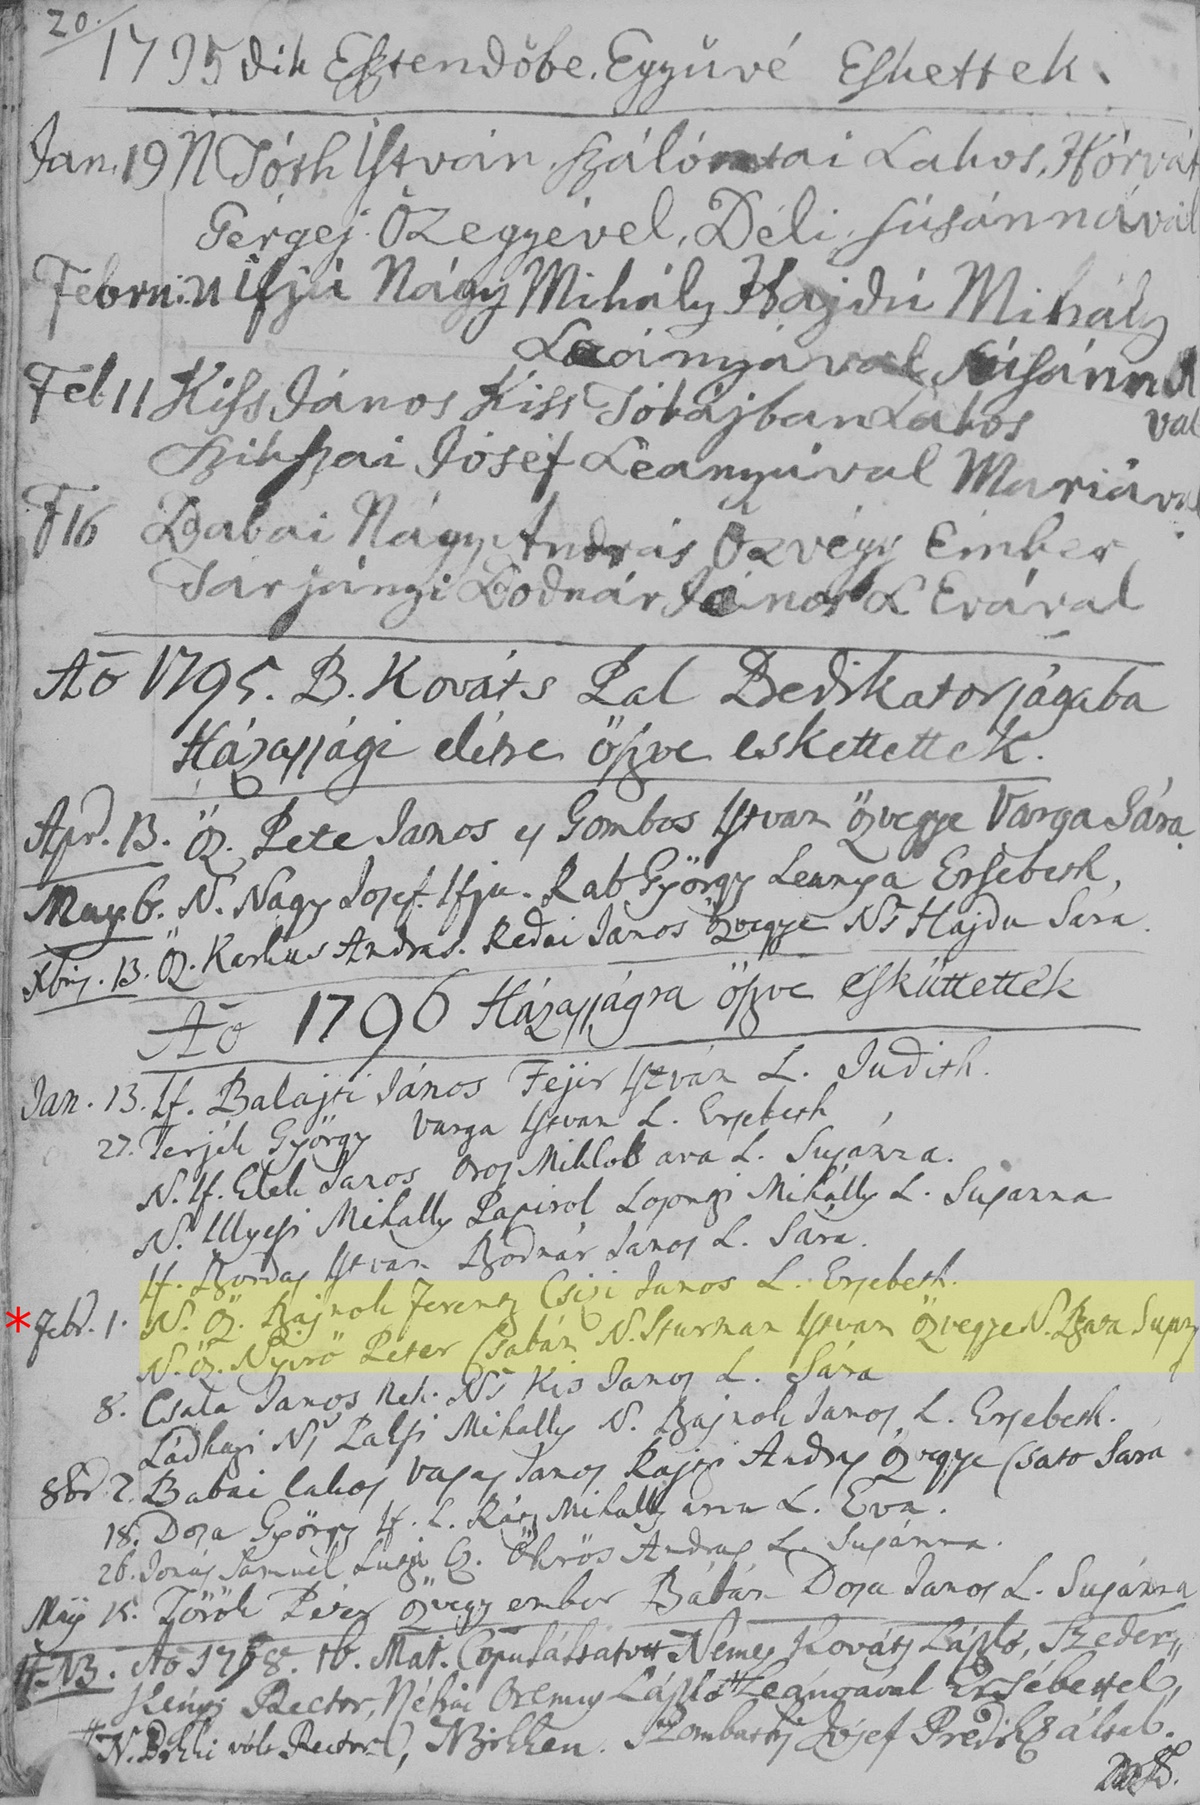 20.
1795dik Esztendőbe. Egyűvé Eskettek.
Jan. 19 N Tóth István Szálóntai Lakos, Hórvát
Gérgej Özegyével, Déli Súsánnával
Febru: 11 ifjú Nágy Mihály Hajdú Mihály
Leányával Súsánná
val
Feb 11 Kiss János Kiss Tokájban Lakos
Szikszai Jósef Leányával Mariával
F 16 Dabai Nágy András Özvégy Ember
Tarjányi Bodnár János L Evával
Aō 1795. B. Kováts Pal Predikatorságaba
Házassági életre öszve eskettettek.
Apr. 13. Öz. Pete Janos es Gombos Istvan özvegye Varga Sára
May. 6. N. Nagy Josef. Ifju. Rab György Leanya Ersebeth,
Xbris. 13. Öz. Karkus Andras. Redai Janos özvegye Ns Hajdu Sara.
Aō 1796 Házasságra öszve esküttettek
Jan. 13. If. Balajti János Fejér István L. Judith.
27. Terjék György Varga Istvan L. Ersebeth
N. If. Elek Janos Oros Miklos ara L. Susánna.
N. Illyesi Mihally Papirol Losonzi Mihálly L. Susanna
If. Bordas Istvan Bodnár János L. Sára.
Febr. 1. N. Öz. Bajnok Ferentz Csizi Janos L. Ersebeth.
N. öz. Nyirő Peter Csabán N. Sturman Istvan özvegye N. Baza Susan
8. Csala Janos Ns Kis Janos L. Sára
Ládházi Ns Palfi Mihally N. Bajnok Janos L. Ersebeth.
8br 2. Babai lakos Vasas Janos Rajzi Andras özvegye Csato Sara
18. Dosa György If. L. Rácz Mihally arra L. Eva.
26. Jonás Samuel Ökrös Andras L. Susánna.
Maji 15. Török Péter özvegy ember Bábán Dosa Janos L. Susánna
Aō 1798. 16. Mart. Copuláltatott Nemes Kováts László, Szeder
kényi Rector, Néhai Oremus László Leányával Ersébettel,
N. volt Rector, Szombathi Jósef Predik által.